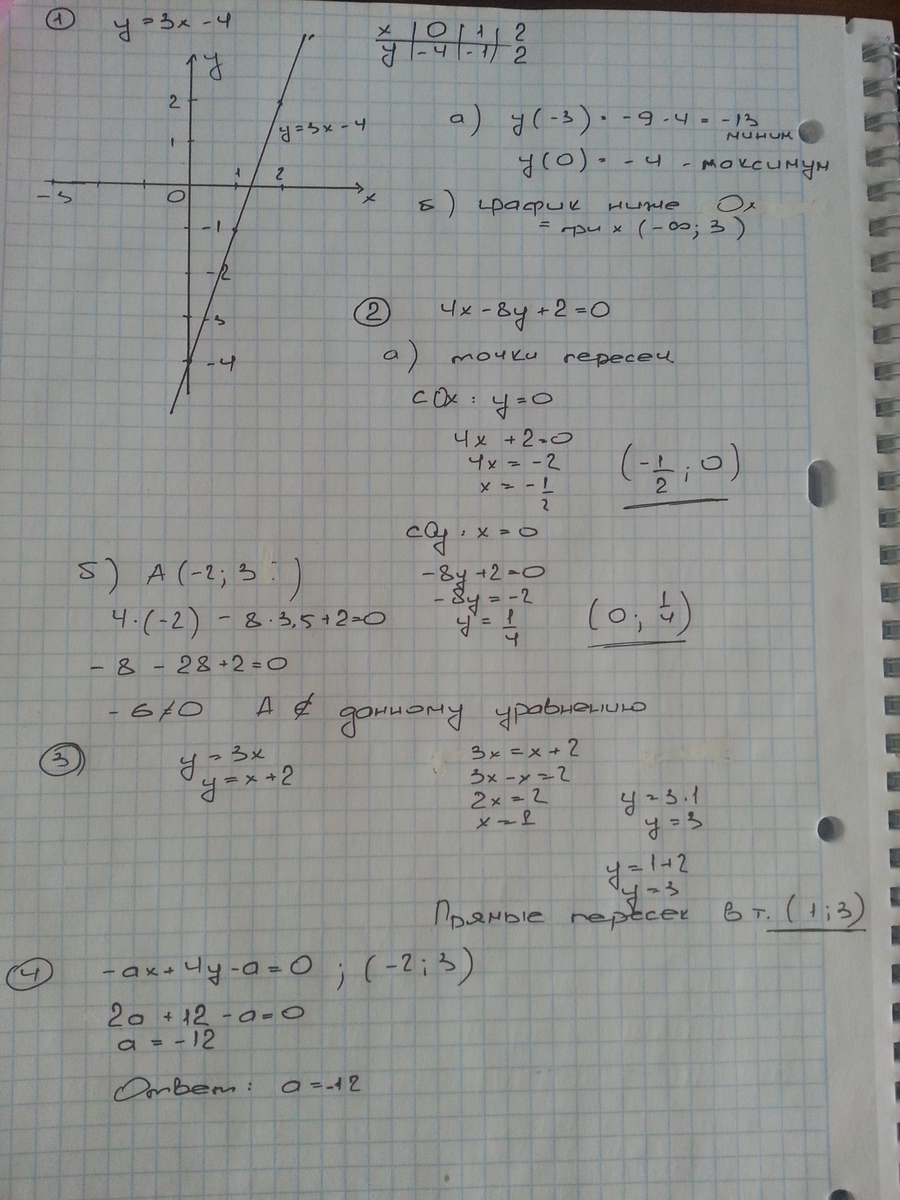 ① y = 3x - 4
x | 0 | 1 | 2
y | -4 | -1 | 2
y
2
1
y = 3x - 4
-3 0 1 2 x
-1
-2
-3
-4
а) y(-3) = -9 - 4 = -13
миним
y(0) = -4 - максимум
б) график ниже Ox
= при x (-∞; 3)
② 4x - 8y + 2 = 0
а) точки пересеч
с Ox: y = 0
4x + 2 = 0
4x = -2
x = -1/2
(-1/2; 0)
с Oy: x = 0
-8y + 2 = 0
-8y = -2
y = 1/4
(0; 1/4)
б) A (-2; 3 )
4·(-2) - 8·3,5 + 2 = 0
-8 - 28 + 2 = 0
-6 ≠ 0 A ∉ данному уравнению
③ y = 3x
y = x + 2
3x = x + 2
3x - x = 2
2x = 2
x = 1
y = 3·1
y = 3
y = 1 + 2
y = 3
Прямые пересек в т. (1; 3)
④ -ax + 4y - a = 0 ; (-2; 3)
2a + 12 - a = 0
a = -12
Ответ: a = -12